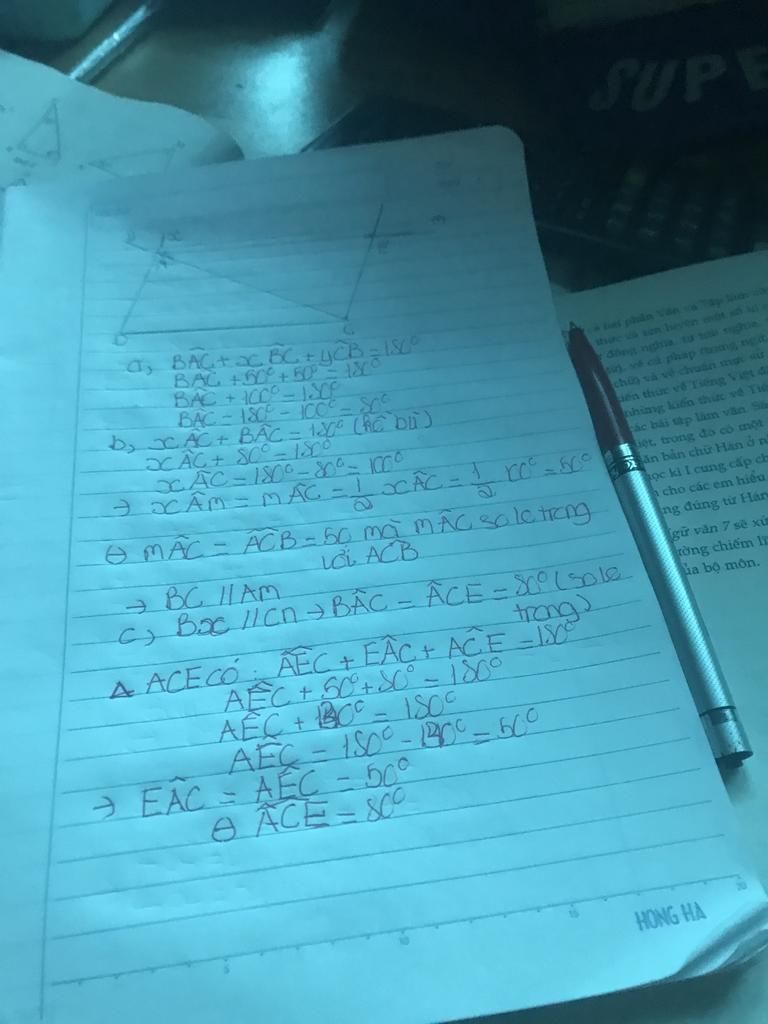 SUPE
a) BÂC + xB̂C + yĈB = 180°
BÂC + 50° + 50° = 180°
BÂC + 100° = 180°
BÂC = 180° - 100° = 80°
b) xÂC + BÂC = 180° (kề bù)
xÂC + 80° = 180°
xÂC = 180° - 80° = 100°
→ xÂm = mÂC = 1/2 xÂC = 1/2 100° = 50°
mÂC = AĈB = 50 mà mÂC so le trong
với ACB
→ BC // Am
c) Bx // Cn → BÂC = ÂCE = 80° (so le
trong)
Δ ACE có: AÊC + EÂC + AĈE = 180°
AÊC + 50° + 80° = 180°
AÊC + 130° = 180°
AÊC = 180° - 130° = 50°
→ EÂC = AÊC = 50°
ÂCE = 80°
5 10 15 20
HONG HA
hai phần Văn và Tập làm
đồng nghĩa, từ trái nghĩa,
từ), về cú pháp
chữ) và về chuẩn mực sử
kiến thức về Tiếng Việt
những kiến thức về Tiế
các bài tập làm văn. Sá
iệt, trong đó có một
ăn bản chữ Hán ở n
học kì I cung cấp ch
cho các em hiểu
ng đúng từ Hán
gữ văn 7 sẽ xứ
ường chiếm lĩ
ủa bộ môn.